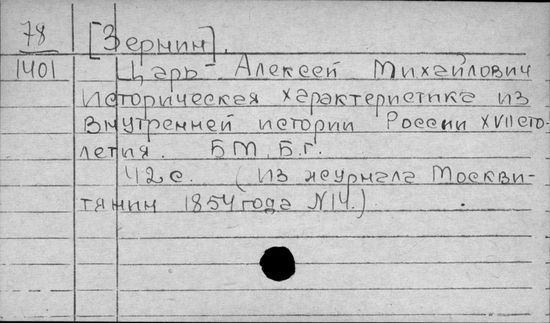 78 [Зернин].
1401 Царь Алексей Михайлович
Историческая характеристика из
внутренней истории России XVII сто-
летия. БМ, Б.г.
42 с. (Из журнала Москви-
тянин 1854 года N14.)